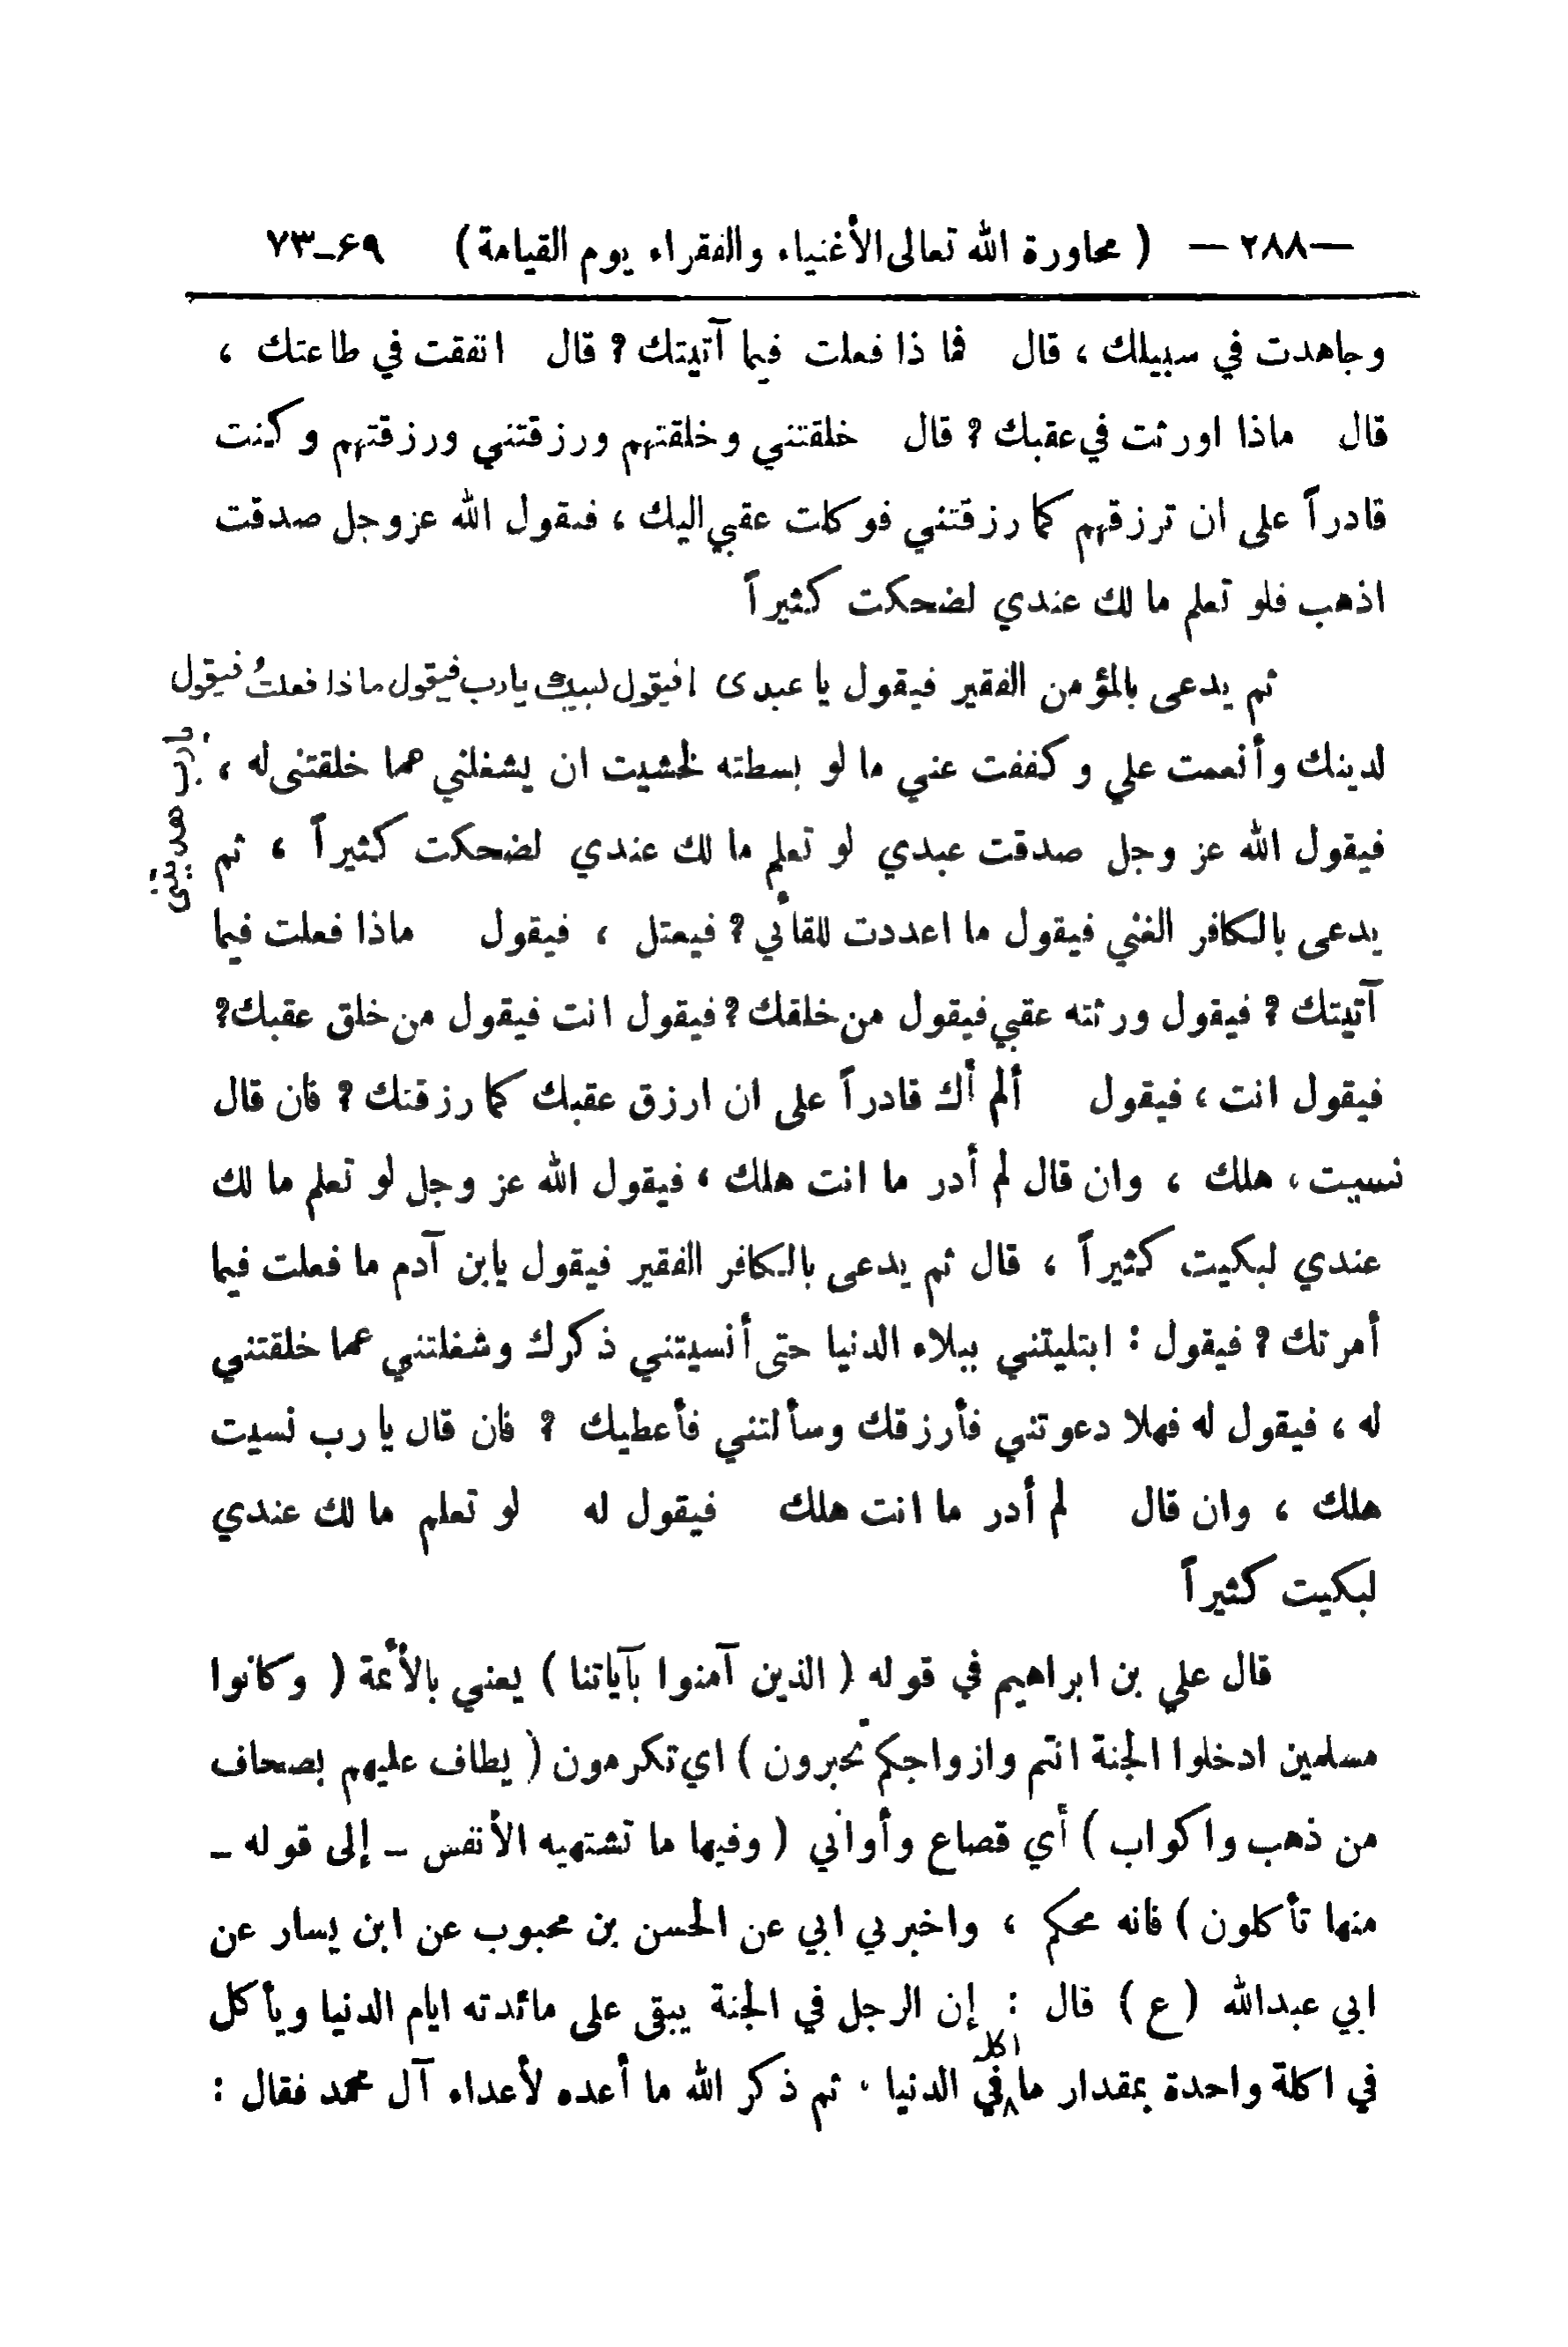 —٢٨٨ — ( محاورة الله تعالى الأغنياء والفقراء يوم القيامة ) ۶٩ـ٧٣
وجاهدت في سبيلك ، قال فما ذا فعلت فيما آتيتك ? قال انفقت في طاعتك ،
قال ماذا اورثت في عقبك ? قال خلقتني وخلقتهم ورزقتني ورزقتهم وكنت
قادراً على ان ترزقهم كما رزقتني فوكلت عقبي اليك ، فيقول الله عز وجل صدقت
اذهب فلو تعلم ما لك عندي لضحكت كثيراً
ثم يدعى بالمؤمن الفقير فيقول يا عبدى افيقول لبيك يا رب فيقول ماذا فعلتُ فيقول
يا رب هديتنى
لدينك وأنعمت علي وكففت عني ما لو بسطته لخشيت ان يشغلني عما خلقتنى له ،
فيقول الله عز وجل صدقت عبدي لو تعلم ما لك عندي لضحكت كثيراً ، ثم
يدعى بالكافر الغني فيقول ما اعددت للقائي ? فيعتل ، فيقول ماذا فعلت فيما
آتيتك ? فيقول ورثته عقبي فيقول من خلقك ? فيقول انت فيقول من خلق عقبك?
فيقول انت ، فيقول ألم أك قادراً على ان ارزق عقبك كما رزقتك ? فان قال
نسيت ، هلك ، وان قال لم أدر ما انت هلك ، فيقول الله عز وجل لو تعلم ما لك
عندي لبكيت كثيراً ، قال ثم يدعى بالكافر الفقير فيقول يابن آدم ما فعلت فيما
أمرتك ? فيقول : ابتليتني ببلاء الدنيا حتى أنسيتني ذكرك وشغلتني عما خلقتني
له ، فيقول له فهلا دعوتني فأرزقك وسألتني فأعطيك ? فان قال يا رب نسيت
هلك ، وان قال لم أدر ما انت هلك فيقول له لو تعلم ما لك عندي
لبكيت كثيراً
قال علي بن ابراهيم في قوله ( الذين آمنوا بآياتنا ) يعني بالأئمة ( وكانوا
مسلمين ادخلوا الجنة انتم وازواجكم تحبرون ) اي تكرمون ( يطاف عليهم بصحاف
من ذهب واكواب ) أي قصاع وأواني ( وفيها ما تشتهيه الأنفس ـ إلى قوله ـ
منها تأكلون ) فانه محكم ، واخبرني ابي عن الحسن بن محبوب عن ابن يسار عن
ابي عبدالله ( ع ) قال : إن الرجل في الجنة يبقى على مائدته ايام الدنيا ويأكل
في اكلة واحدة بمقدار ما اكله في الدنيا . ثم ذكر الله ما أعده لأعداء آل محمد فقال :